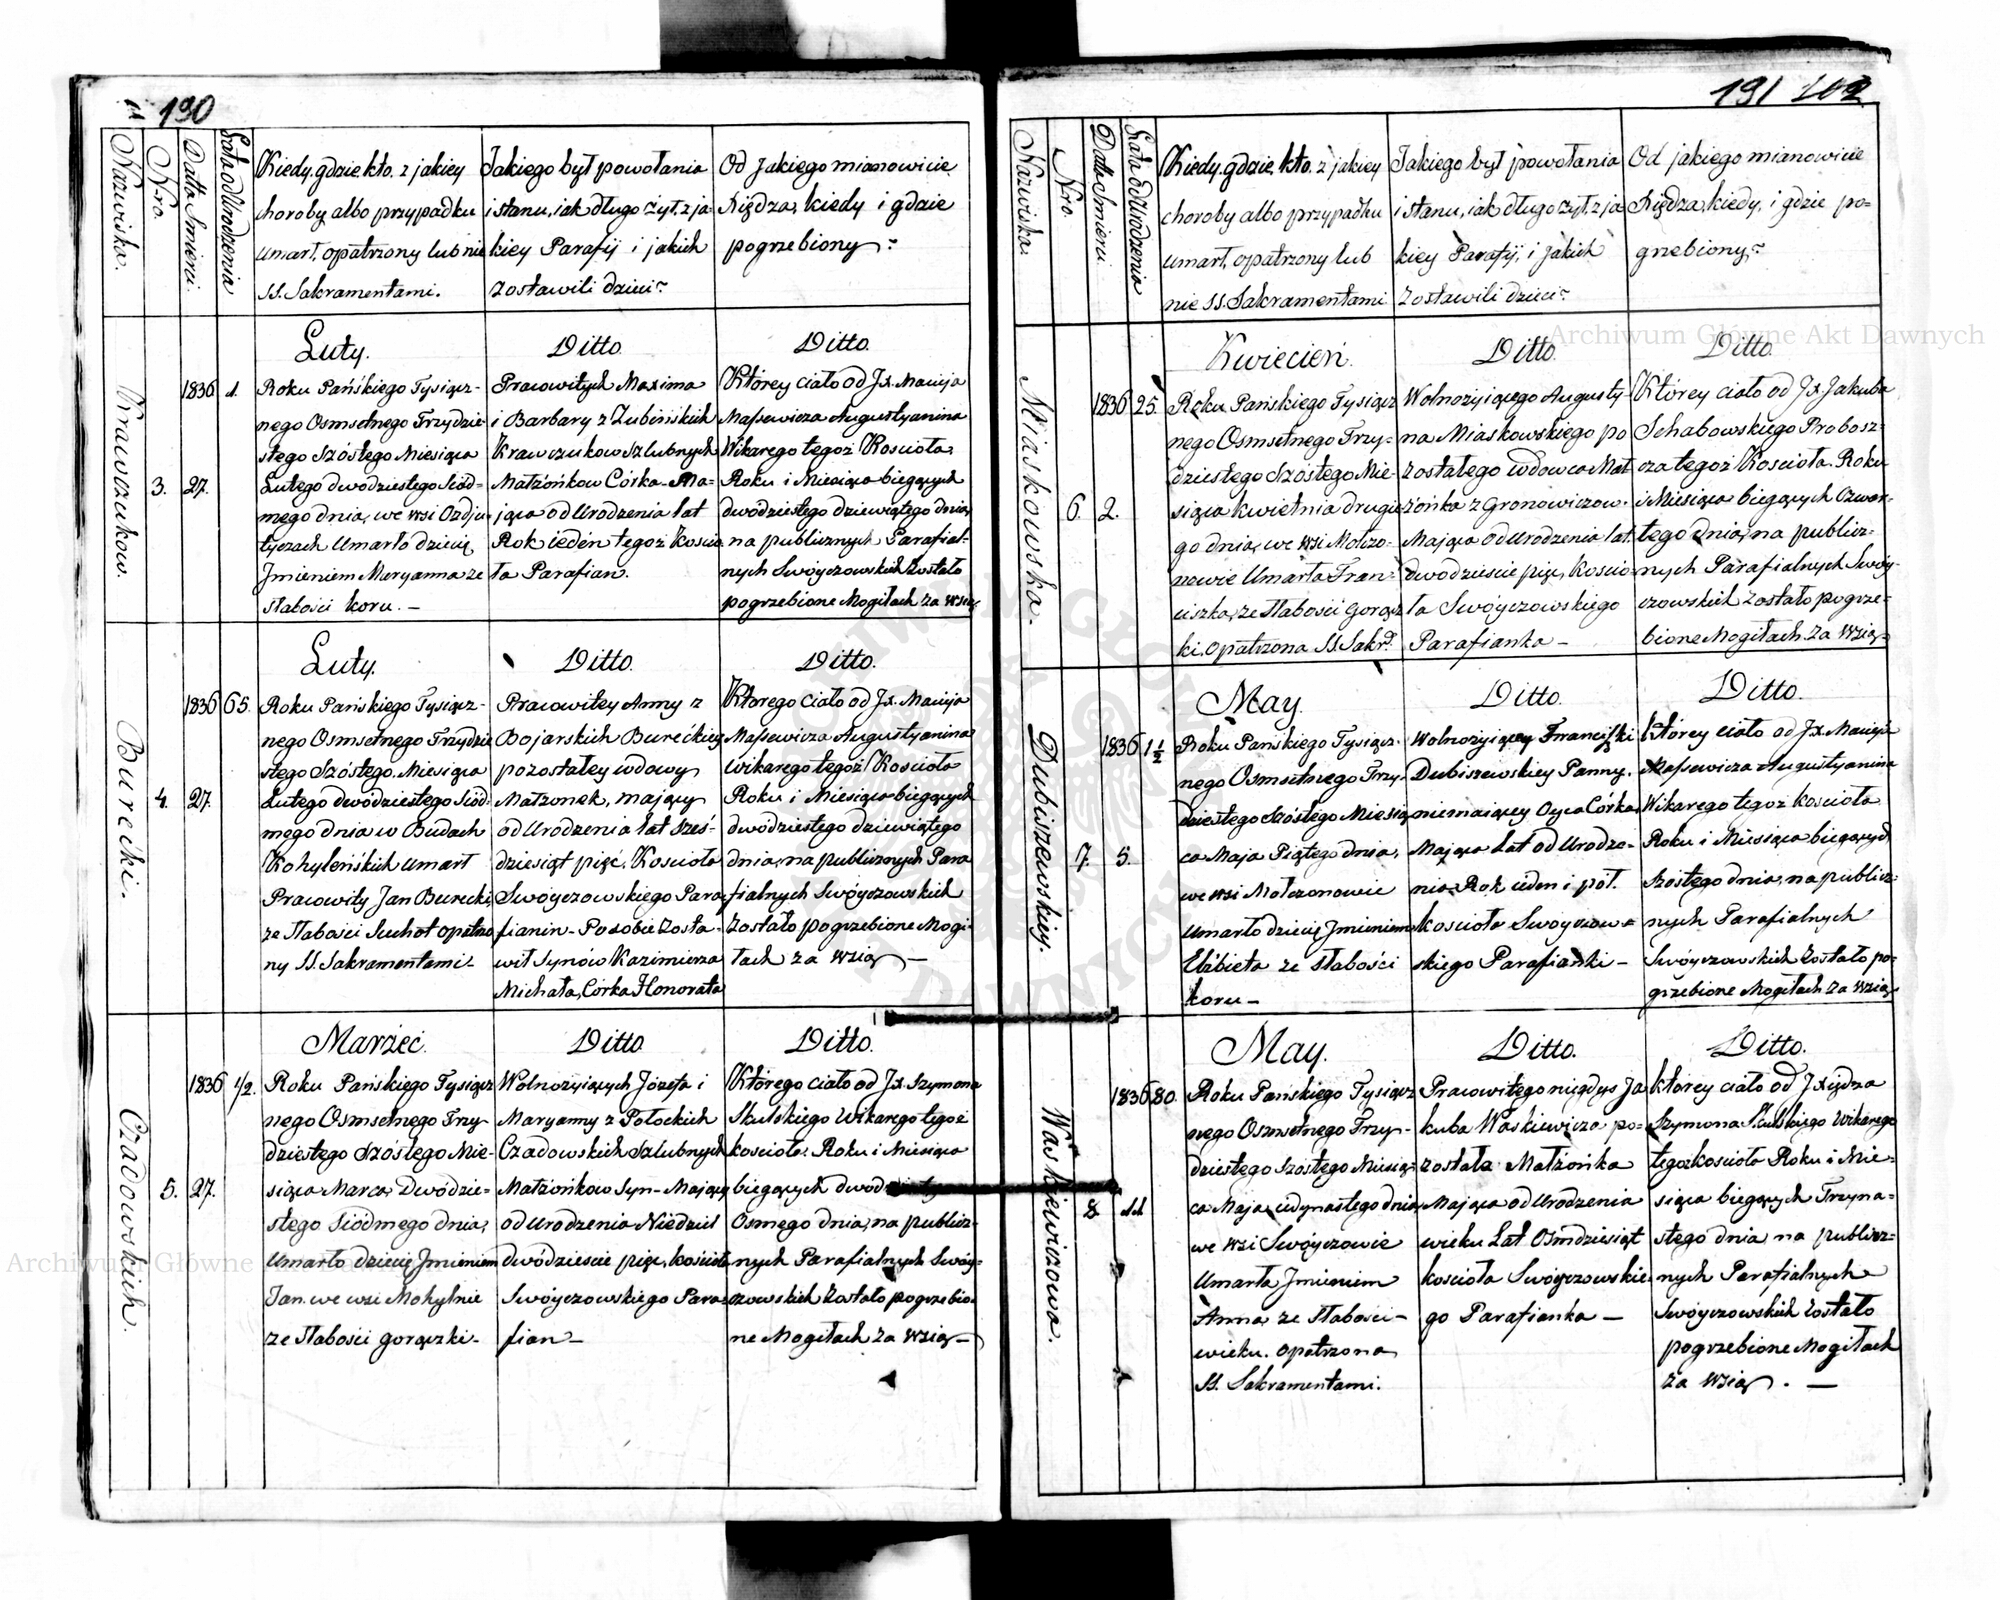 190
Nazwiska.
Nro.
Datta Smierci.
Lata od Urodzenia
Kiedy, gdzie kto. z jakiey
choroby albo przypadku
umarł, opatrzony lub nie
SS. Sakramentami.
Jakiego był powołania
i stanu, iak długo żył, z ja-
kiey Parafij i jakich
zostawili dzieci?
Od Jakiego mianowicie
Xiędza, kiedy i gdzie
pogrzebiony?
Krawczukow.
3.
1836
27.
1.
Luty.
Roku Pańskiego Tysiącz-
nego Osmsetnego Trzydzie-
stego Szóstego Miesiąca
Lutego dwudziestego Siód-
mego dnia, we wsi Ozdju-
tyczach Umarło dziecię
Jmieniem Maryanna ze
słabości koru. —
Ditto.
Pracowitych Maxima
i Barbary z Zubińskich
Krawczukow Szlubnych
Małżonkow Córka Ma-
jąca od Urodzenia lat
Rok ieden tegoż Koscio
ła Parafian.
Ditto.
Którey ciało od Jx. Macieja
Massewicza Augustyanina
Wikarego tegoż Kościoła
Roku i Miesiąca bieżących
dwudziestego dziewiątego dnia,
na publicznych Parafial-
nych Swóyczowskich Zostało
pogrzebione Mogiłach za wsią
Burecki.
4.
1836
27.
65.
Luty.
Roku Pańskiego Tysiącz-
nego Osmsetnego Trzydzie
stego Szóstego Miesiąca
Lutego dwudziestego Siód
mego dnia w Budach
Kohyleńskich umarł
Pracowity Jan Burecki
ze słabości Suchot opatrzo
ny SS. Sakramentami-
Ditto.
Pracowitey Anny z
Bojarskich Bureckiey
pozostałey wdowy
Małżonek, mający
od Urodzenia lat Sześ-
dziesiąt pięć. Kościoła
Swóyczowskiego Para
fianin- Po sobie Zosta-
wił Synów Kazimierza
Michała, Córka Honorata
Ditto.
Którego ciało od Jx. Macieja
Massewicza Augustyanina
Wikarego tegoż Kościoła
Roku i Miesiąca bieżących
dwudziestego dziewiątego
dnia, na publicznych Para
fialnych Swóyczowskich
Zostało pogrzebione Mogi-
łach za wsią —
Czadowskich.
5.
1836
27.
1/2.
Marzec.
Roku Pańskiego Tysiącz
nego Osmsetnego Trzy
dziestego Szóstego Mie-
siąca Marca Dwudzie-
stego Siódmego dnia,
Umarło dziecię Jmieniem
Jan. we wsi Mohylnie
ze słabości gorączki-
Ditto
Wolnożyiących Józefa i
Maryanny z Potockich
Czadowskich Szlubnych
Małżonkow Syn- Mający
od Urodzenia Niedziel
dwudzieście pięć, kościoła
Swóyczowskiego Para
fian-
Ditto.
Którego ciało od Jx. Szymona
Skulskiego Wikarego tegoż
kościoła. Roku i Miesiąca
bieżących
Osmego dnia, na publicz-
nych Parafialnych Swóy-
czowskich Zostało pogrzebio-
ne Mogiłach za wsią —
191 102
Nazwiska.
Nro.
Datta Smierci.
Lata od Urodzenia
Kiedy, gdzie, kto. z jakiey
choroby albo przypadku
umarł, opatrzony lub
nie SS. Sakramentami
Jakiego był powołania
i stanu, iak długo żył, z ja
kiey Parafij, i jakich
zostawili dzieci?
Od jakiego mianowicie
Xiędza, kiedy, i gdzie po=
grzebiony?
Miaskowska.
6.
1836
2.
25.
Kwiecień.
Roku Pańskiego Tysiącz
nego Osmsetnego Trzy-
dziestego Szóstego Mie-
siąca kwietnia drugie-
go dnia, we wsi Mołczo-
nowie Umarła Fran-
ciszka, ze słabości Gorącz
ki. opatrzona SS. Sakr.
Ditto.
Wolnożyiącego Augusty-
na Miaskowskiego po
zostałego wdowca Mał
żonka z Gronowiczow.
Mająca od Urodzenia lat.
dwudzieście pięć, Koscio
ła Swóyczowskiego
Parafianka —
Ditto.
Którey ciało od Jx. Jakuba
Schabowskiego Probosz-
cza tegoż Kościoła. Roku
i Miesiąca bieżących Czwar-
tego dnia, na publicz-
nych Parafialnych Swóy-
czowskich Zostało pogrze-
bione Mogiłach za wsią-
Dubiszewskiey.
7.
1836
5.
1 1/2
May.
Roku Pańskiego Tysiącz-
nego Osmsetnego Trzy-
dziestego Szóstego Miesią
ca Maja Piątego dnia,
we wsi Mołczonowie
Umarło dziecię Jmieniem
Elżbieta ze słabości
koru-
Ditto.
Wolnożyiącey Franciszki
Dubiszewskiey Panny.
niemaiącey Oyca Córka
Mająca Lat od Urodze-
nia Rok ieden i pół.
kościoła Swóyczow-
skiego Parafianki —
Ditto.
którey ciało od Jx. Macieja
Massewicza Augustyanina
Wikarego tegoż kościoła
Roku i Miesiąca bieżących
Szóstego dnia, na publicz-
nych Parafialnych
Swóyczowskich Zostało po-
grzebione Mogiłach za wsią
Waskiewiczowa.
8.
1836
11
80.
May.
Roku Pańskiego Tysiącz
nego Osmsetnego Trzy-
dziestego Szóstego Miesią
ca Maja iedynastego dnia
we wsi Swóyczowie
Umarła Jmieniem
Anna ze słabości-
wieku. opatrzona
SS. Sakramentami.
Ditto.
Pracowitego niegdyś Ja
kuba Waskiewicza po-
została Małżonka
Mająca od Urodzenia
wieku Lat Osmdziesiąt
kościoła Swóyczowskie
go Parafianka —
Ditto.
którey ciało od Jxiędza
Szymona Skulskiego Wikarego
tegoż kościoła Roku i Mie-
siąca bieżących Trzyna-
stego dnia, na publicz-
nych Parafialnych
Swóyczowskich Zostało
pogrzebione Mogiłach
za wsią. —
Archiwum Główne Akt Dawnych
Archiwum Główne